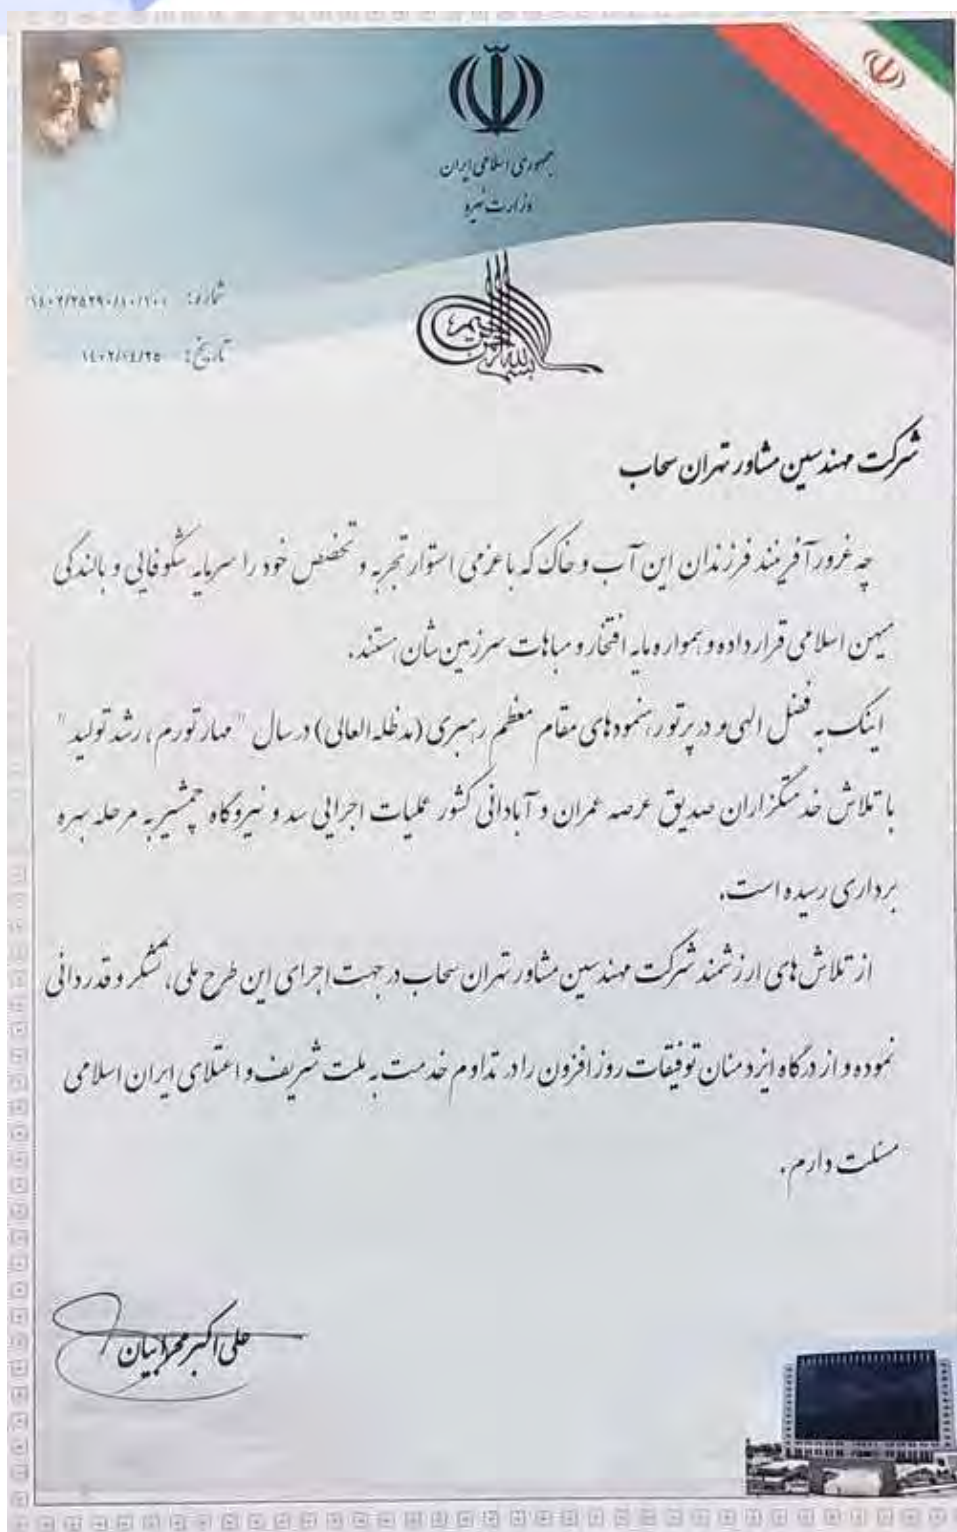 جمهوری اسلامی ایران
وزارت نیرو
بسم الله الرحمن الرحیم
شماره: ۱۴۰۲/۲۵۲۹۰/۱۰/۱۰۰
تاریخ: ۱۴۰۲/۰۴/۲۵
شرکت مهندسین مشاور تهران سحاب
چه غرورآفرینند فرزندان این آب و خاک که با عزمی استوار تجربه و تخصص خود را سرمایه شکوفائی و بالندگی
میهن اسلامی قرار داده و همواره مایه افتخار و مباهات سرزمین شان هستند.
اینک به فضل الهی و در پرتو رهنمودهای مقام معظم رهبری (مدظله العالی) در سال "مهار تورم، رشد تولید"
با تلاش خدمتگزاران صدیق عرصه عمران و آبادانی کشور عملیات اجرایی سد و نیروگاه چمشیر به مرحله بهره
برداری رسیده است.
از تلاش های ارزشمند شرکت مهندسین مشاور تهران سحاب در جهت اجرای این طرح ملی، تشکر و قدردانی
نموده و از درگاه ایزد منان توفیقات روزافزون را در تداوم خدمت به ملت شریف و اعتلای ایران اسلامی
مسئلت دارم.
علی اکبر محرابیان